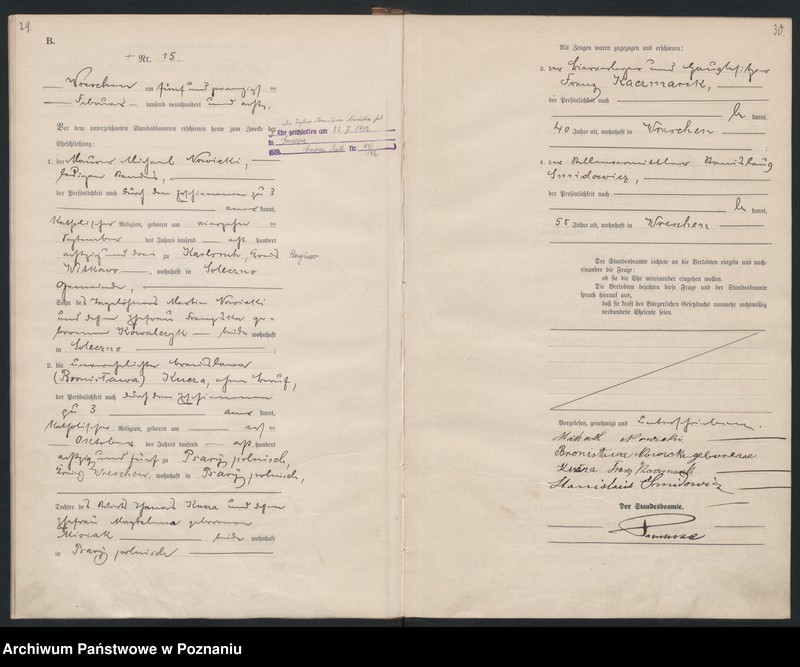 29.
B.
+ Nr. 15.
Wreschen am fünf und zwanzigsten
Februar tausend neunhundert und acht.
Vor dem unterzeichneten Standesbeamten erschienen heute zum Zwecke der
Eheschließung:
Ehe geschlossen am
in
Nr.
1. der Maurer Michael Nowicki,
ledigen Standes,
der Persönlichkeit nach durch den Erschienenen zu 3
anerkannt,
katholischer Religion, geboren am vierzehnten
September des Jahres tausend acht hundert
achtzig und drei zu Karlsruh, Kreis
Witkowo, wohnhaft in Soleczno
Gemeinde,
Sohn des Tagelöhners Martin Nowicki
und dessen Ehefrau Franziska ge-
borenen Kowalczyk beide wohnhaft
in Soleczno ;
2. die unverehelichte Bronislawa
(Bronisława) Kucza, ohne Beruf,
der Persönlichkeit nach durch den Erschienenen
zu 3 anerkannt,
katholischer Religion, geboren am
Oktober des Jahres tausend acht hundert
achtzig und fünf zu Psary polnisch,
Kreis Wreschen, wohnhaft in Psary polnisch,
Tochter des Thomas Kucza und dessen
Ehefrau Magdalena geborenen
beide wohnhaft
in Psary polnisch
30.
Als Zeugen waren zugezogen und erschienen:
3. der Bierverleger und Hausbesitzer
Franz Kaczmarek,
der Persönlichkeit nach
be kannt,
40 Jahre alt, wohnhaft in Wreschen
;
4. der Stellenvermittler Stanislaus
Smidowicz,
der Persönlichkeit nach
be kannt,
55 Jahre alt, wohnhaft in Wreschen
Der Standesbeamte richtete an die Verlobten einzeln und nach-
einander die Frage:
ob sie die Ehe miteinander eingehen wollen.
Die Verlobten bejahten diese Frage und der Standesbeamte
sprach hierauf aus,
daß sie kraft des Bürgerlichen Gesetzbuchs nunmehr rechtmäßig
verbundene Eheleute seien.
Vorgelesen, genehmigt und unterschrieben.
Nowicki
Bronisława Nowicka geborene
Kucza Franz Kaczmarek
Stanislaus Smidowicz
Der Standesbeamte.
Archiwum Państwowe w Poznaniu